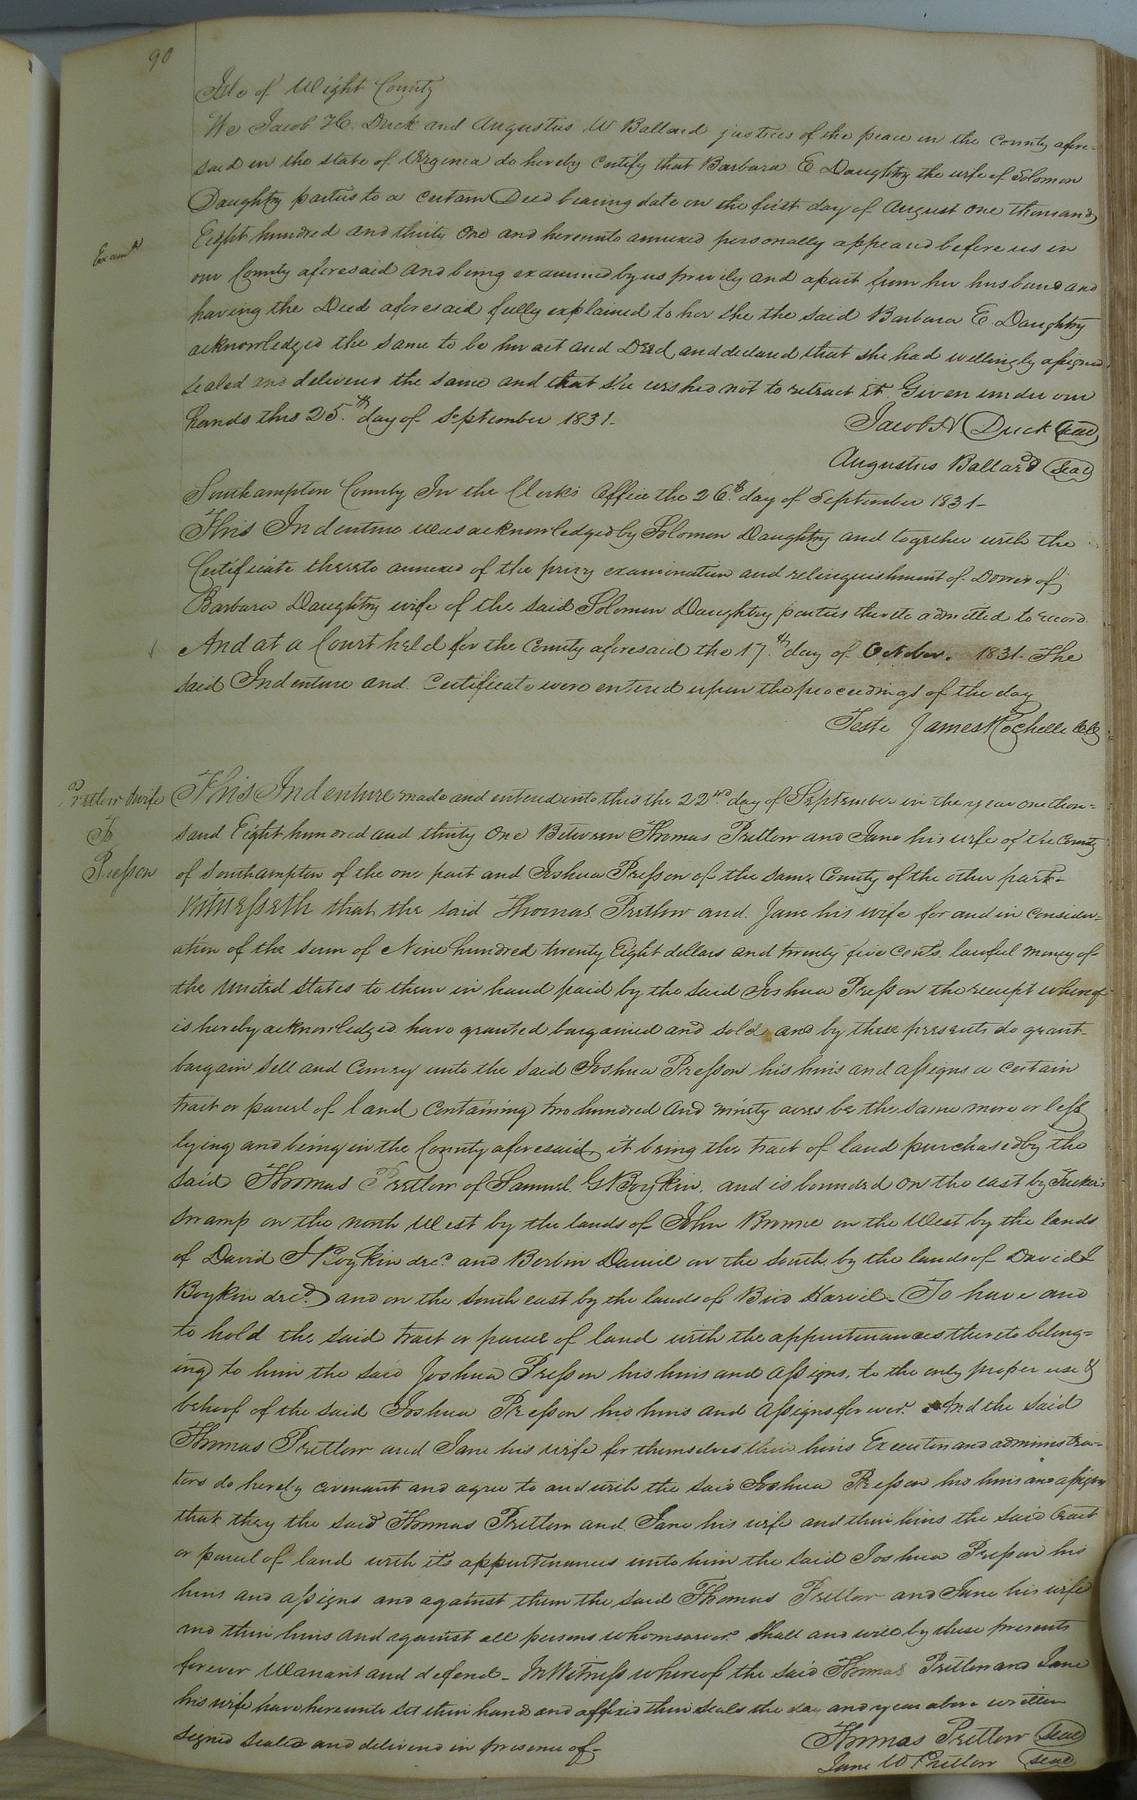 90
Isle of Wight County
We Jacob H. Duck and Augustus W Ballard justices of the peace in the County afore-
said in the state of Virginia do hereby certify that Barbara E Daughtry the wife of Solomon
Daughtry parties to a certain Deed bearing date on the first day of August One thousand
Eight hundred and thirty One and hereunto annexed personally appeared before us in
Examd
our County aforesaid and being examined by us privily and apart from her husband and
having the Deed aforesaid fully explained to her she the said Barbara E. Daughtry
acknowledged the same to be her act and Deed and declared that she had willingly assigned
sealed and delivered the same and that she wished not to retract it Given under our
hands this 25th day of September 1831.
Jacob H Duck (seal)
Augustus Ballard (seal)
Southampton County In the Clerk's Office the 26th day of September 1831-
This Indenture was acknowledged by Solomon Daughtry and together with the
Certificate thereto annexed of the privy examination and relinquishment of Dower of
Barbara Daughtry wife of the said Solomon Daughtry parties thereto admitted to record
And at a Court held for the County aforesaid the 17th day of October. 1831. The
said Indenture and Certificate were entered upon the proceedings of the day
Teste James Rochelle
Pretlow & wife
To
Presson
This Indenture made and entered into this the 22nd day of September in the year one thou=
sand Eight hundred and thirty One Between Thomas Pretlow and Jane his wife of the County
of Southampton of the one part and Joshua Presson of the same County of the other part-
Witnesseth that the said Thomas Pretlow and Jane his wife for and in consider=
ation of the sum of Nine hundred twenty Eight dollars and twenty five Cents, lawful money of
the United States to them in hand paid by the said Joshua Presson the receipt whereof
is hereby acknowledged have granted bargained and sold and by these presents do grant-
bargain sell and Convey unto the said Joshua Presson his heirs and assigns a certain
tract or parcel of land containing two hundred and ninety acres be the same more or less
lying and being in the County aforesaid it being the tract of land purchased by the
said Thomas Pretlow of Samuel G Boykin. and is bounded on the east by
Swamp on the north West by the lands of John on the West by the lands
of David J Boykin decd and Daniel on the south by the lands of David J
Boykin decd. and on the south east by the lands of - To have and
to hold the said tract or parcel of land with the appurtenances thereto belong=
ing to him the said Joshua Presson his heirs and assigns, to the only proper use &
behoof of the said Joshua Presson his heirs and assigns forever. And the said
Thomas Pretlow and Jane his wife for themselves their heirs Executors and administra=
tors do hereby covenant and agree to and with the said Joshua Presson his heirs and assigns
that they the said Thomas Pretlow and Jane his wife and their heirs the said tract
or parcel of land with its appurtenances unto him the said Joshua Presson his
heirs and assigns and against them the said Thomas Pretlow and Jane his wife
and their heirs and against all persons whomsoever shall and will by these presents
forever Warrant and defend - In Witness whereof the said Thomas Pretlow and Jane
his wife have hereunto set their hand and affixed their seals the day and year above written
Signed Sealed and delivered in presence of-
Thomas Pretlow (seal)
Jane W Pretlow (seal)